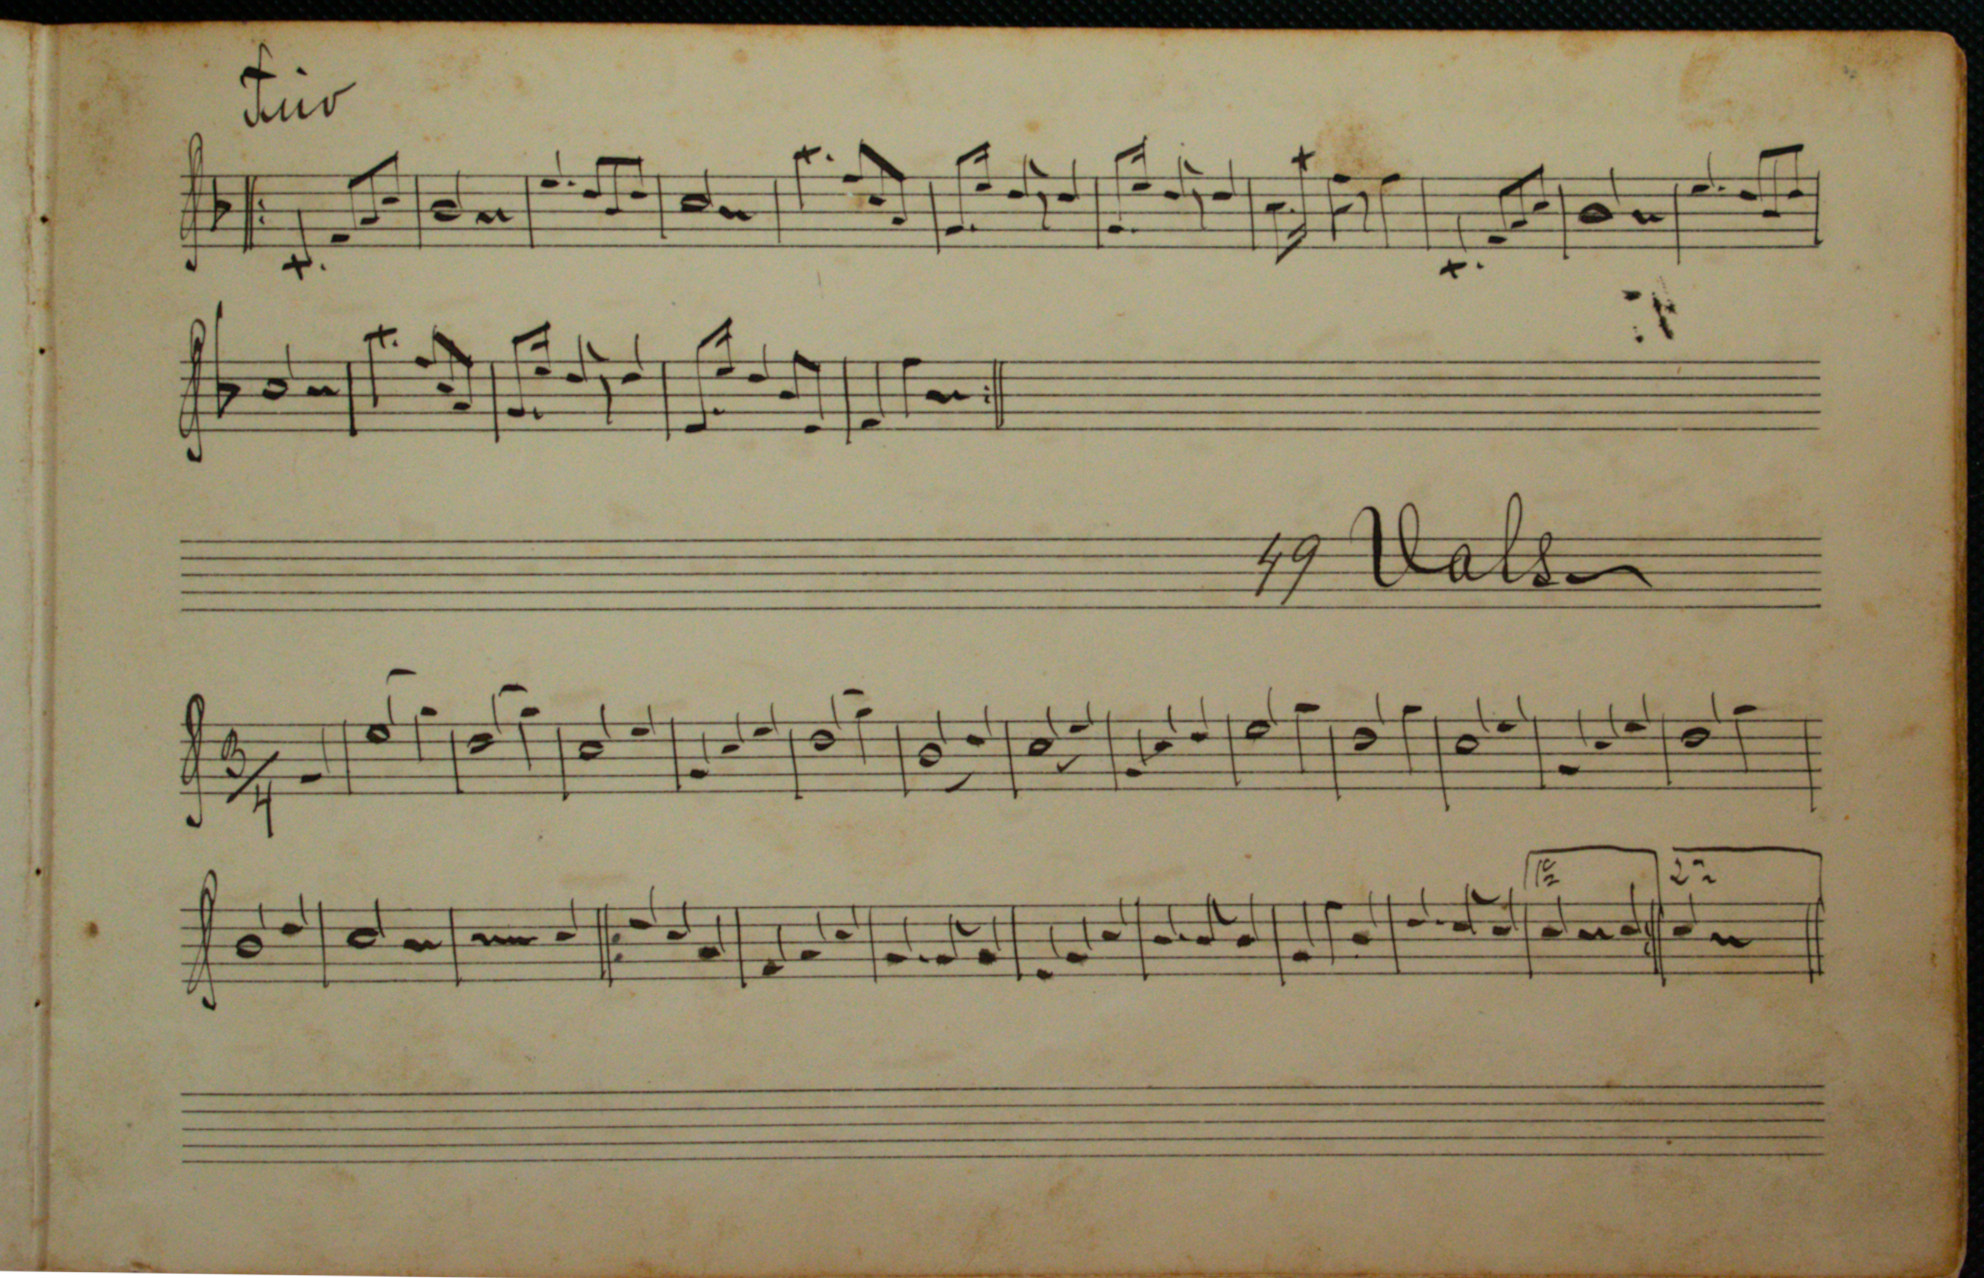 Trio
49 Vals
3/4
1a
2a